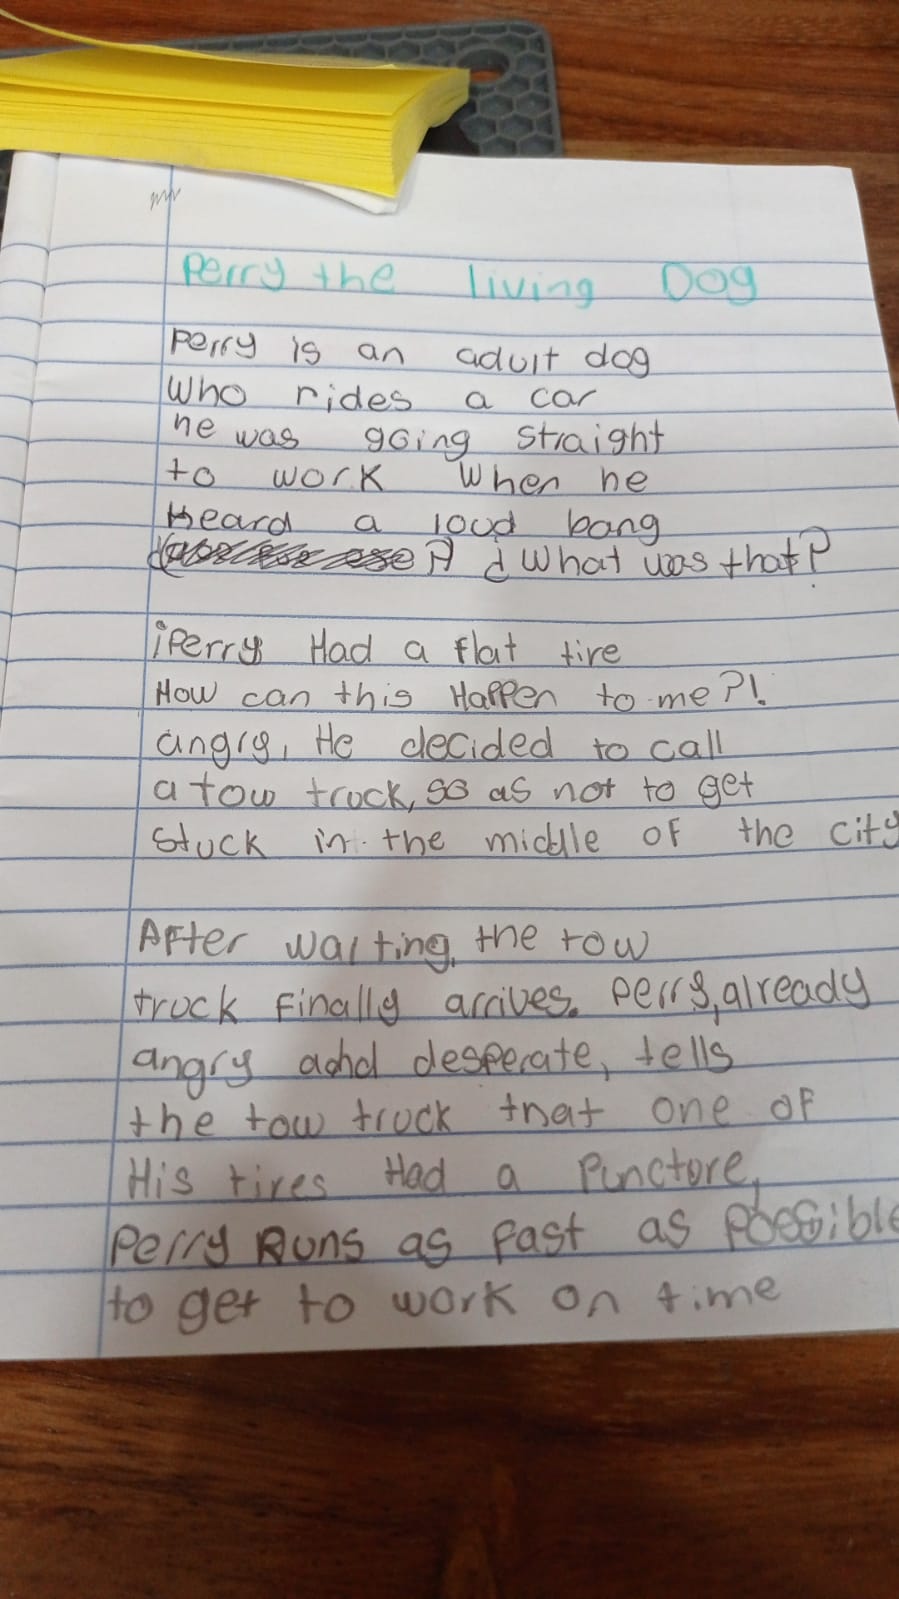 Perry the living Dog
Perry is an adult dog
Who rides a car
he was going straight
to work When he
Heard a loud bang
¿What was that?
¡Perry Had a flat tire
How can this Happen to me?!
angry, He decided to call
a tow truck, so as not to get
stuck in the middle of the city
After waiting, the tow
truck Finally arrives. Perry, already
angry and desperate, tells
the tow truck that one of
His tires Had a Puncture,
Perry Runs as fast as possible
to get to work on time